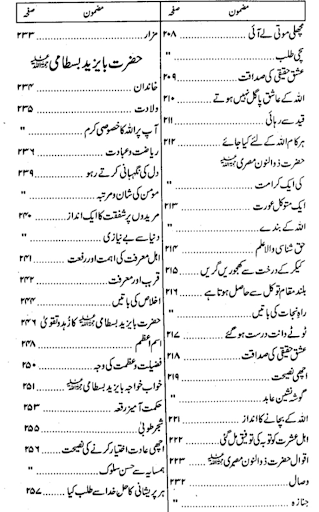 مضمون صفحہ
مچھلی موتی لے آئی ۲۰۸
سچی طلب "
عشق حقیقی کی صداقت ۲۰۹
اللہ کے عاشق پاگل نہیں ہوتے ۲۱۰
قید سے رہائی ۲۱۱
ہر کام اللہ کے لئے کیا جائے ۲۱۲
حضرت ذوالنون مصری رحمۃ اللہ علیہ
کی ایک کرامت "
ایک متوکل عورت ۲۱۳
اللہ کے بندے "
حق شناسی والا علم ۲۱۴
کیکر کے درخت سے کھجوریں گریں ۲۱۵
بلند مقام توکل سے حاصل ہوتا ہے ۲۱۶
راہِ نجات کی باتیں "
ٹوٹے دانت درست ہو گئے ۲۱۷
عشق حقیقی کی صداقت ۲۱۸
اچھی نصیحت ۲۱۹
گوشہ نشین عابد "
اللہ کے بچانے کا انداز ۲۲۱
اہل عشرت کو توبہ کی توفیق مل گئی ۲۲۲
اقوال حضرت ذوالنون مصری رحمۃ اللہ علیہ ۲۲۳
وصال ۲۳۲
جنازہ "
مضمون صفحہ
مزار ۲۳۳
حضرت بایزید بسطامی رحمۃ اللہ علیہ
خاندان ۲۳۴
ولادت ۲۳۵
آپ پر اللہ کا خصوصی کرم "
ریاضت و عبادت ۲۳۶
دل کی نگہبانی کرتے رہو ۲۳۹
مومن کی شان و مرتبہ "
مریدوں پر شفقت کا ایک انداز ۲۴۰
دنیا سے بے نیازی "
اہل معرفت کی اہمیت اور رفعت ۲۴۱
قرب اور معرفت ۲۴۲
اخلاص کی باتیں ۲۴۴
حضرت بایزید بسطامی رحمۃ اللہ علیہ کا زُہد و تقویٰ ۲۴۶
اسم اعظم ۲۴۸
فضیلت و عظمت کی وجہ ۲۵۰
خواب خواجہ بایزید بسطامی رحمۃ اللہ علیہ ۲۵۱
حکمت آمیز رقعہ ۲۵۳
شجر طوبیٰ ۲۵۵
اچھی عادت اختیار کرنے کی نصیحت ۲۵۶
ہمسایہ سے حسن سلوک "
ہر پریشانی کا حل خدا سے طلب کیا ۲۵۷